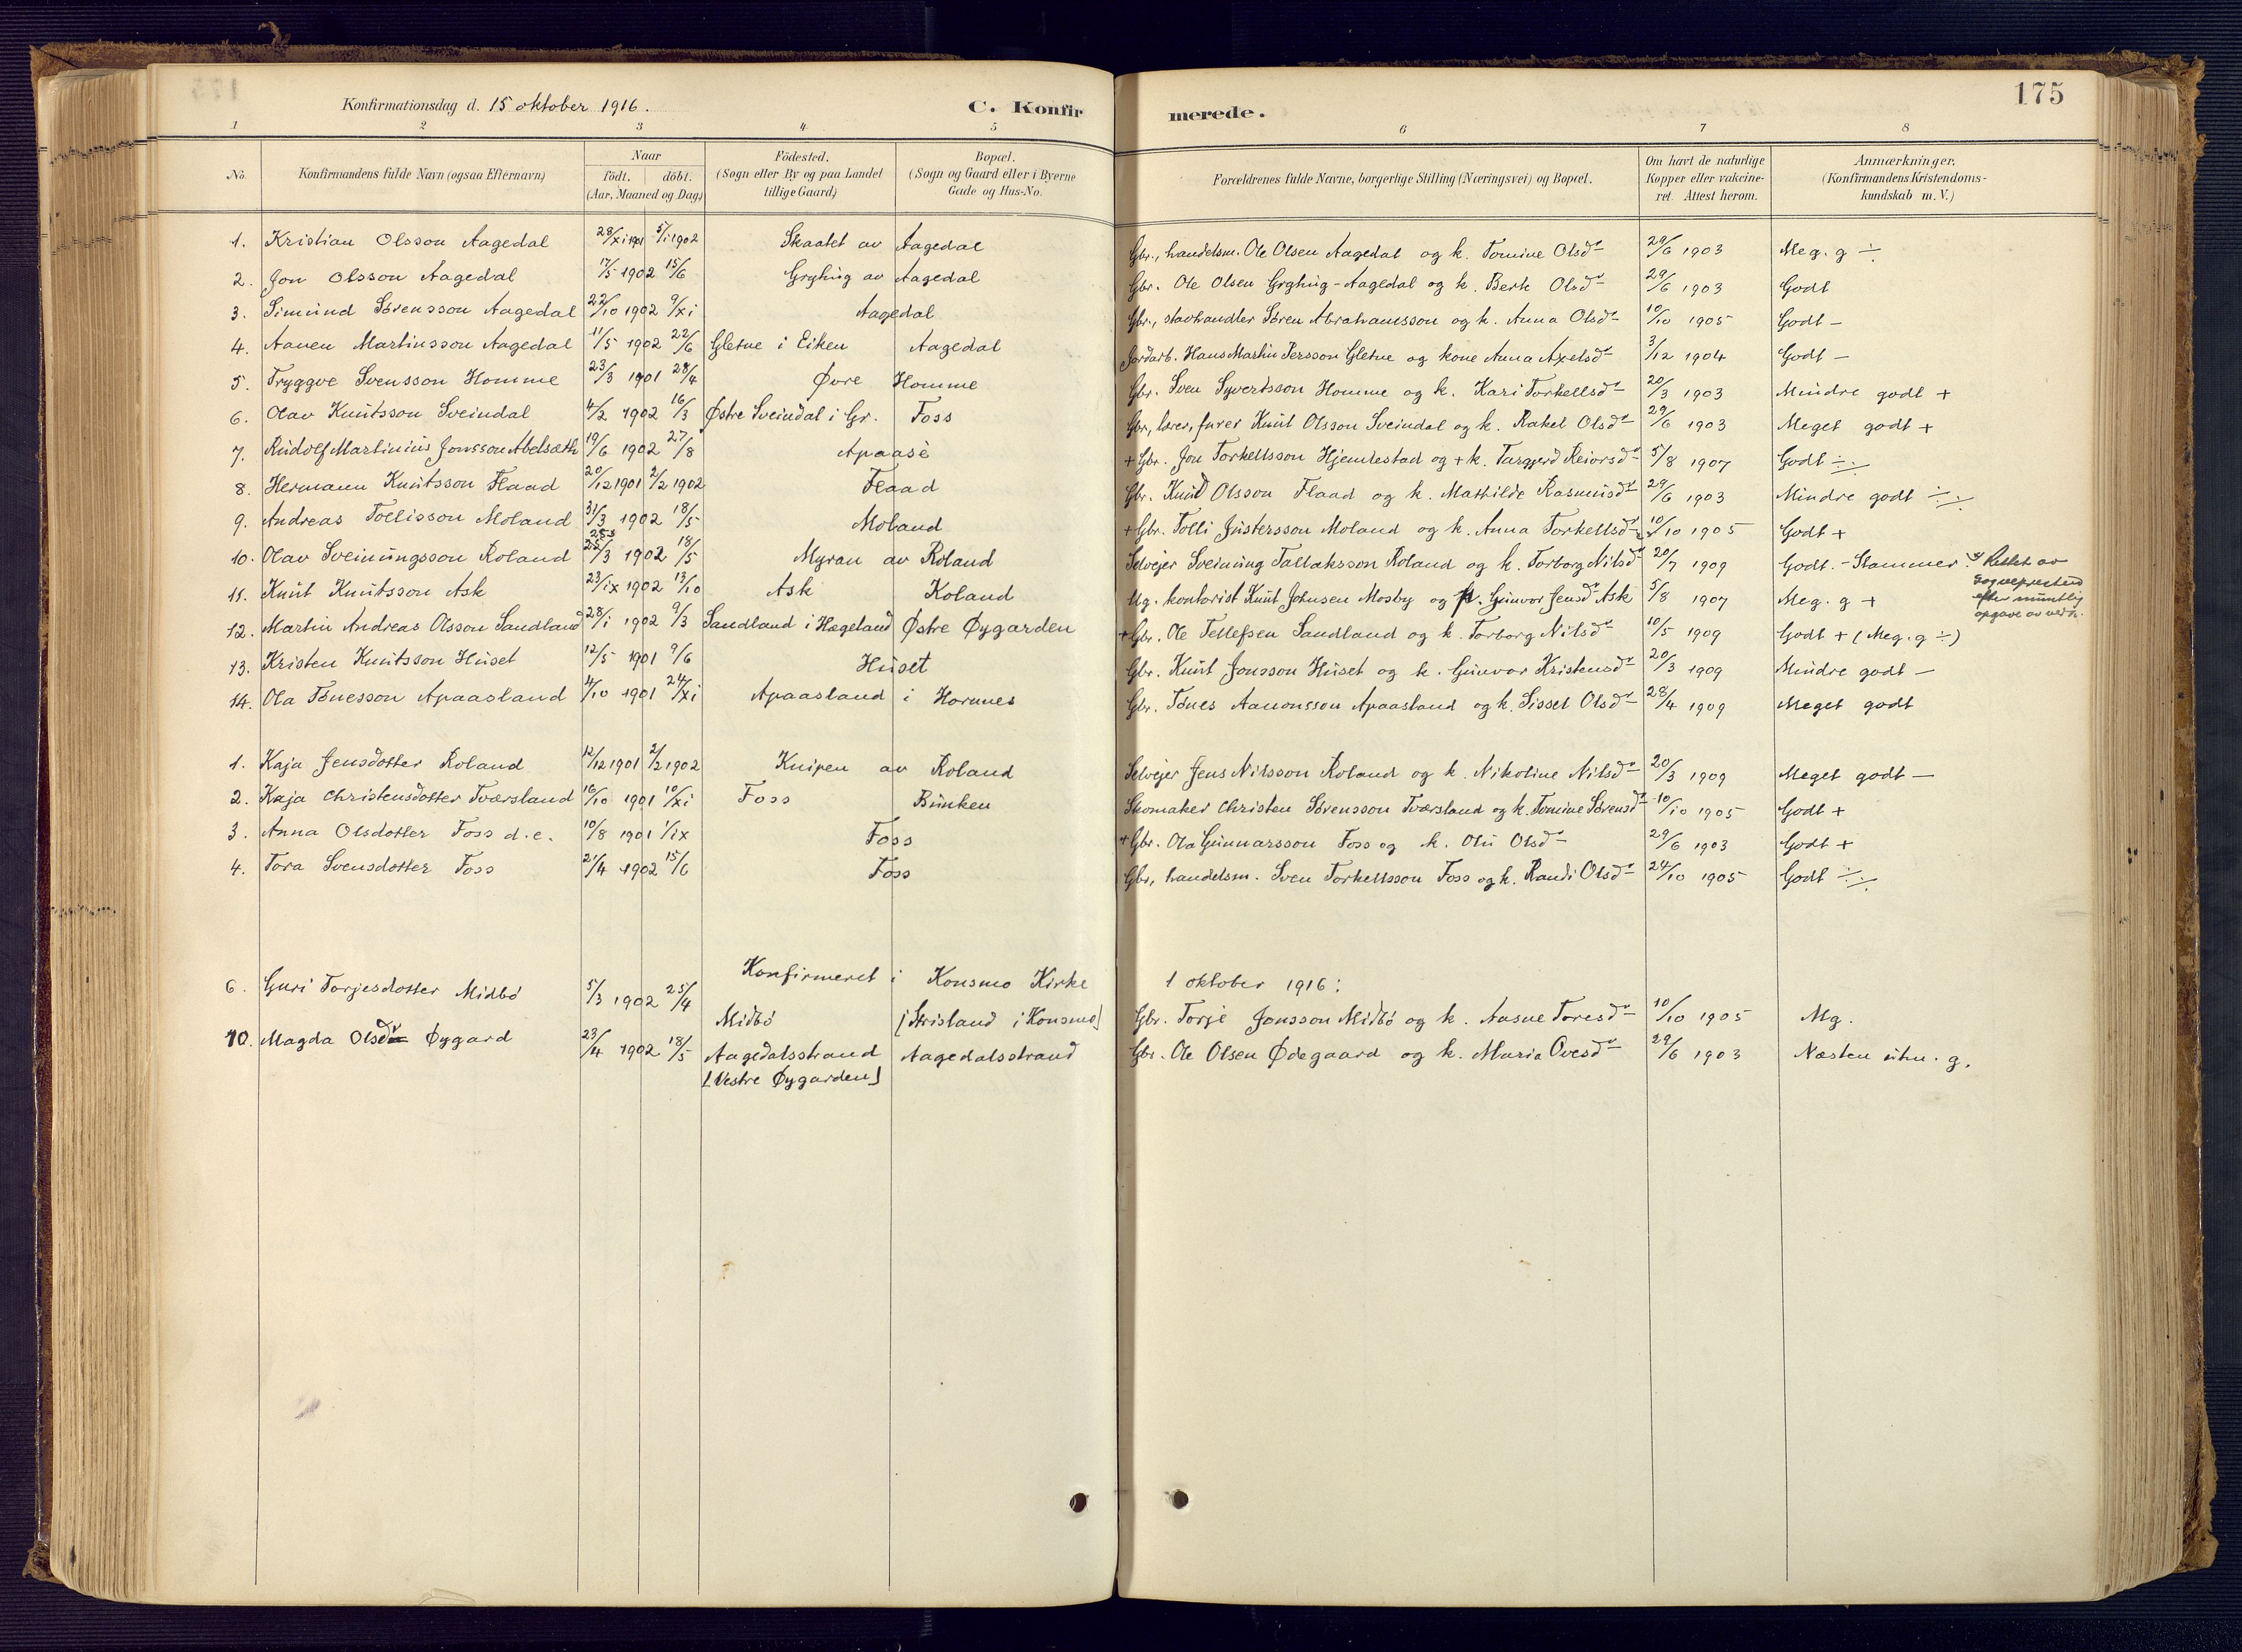 175
Konfirmationsdag d. 15 oktober 1916.
C. Konfirmerede.
1 2 3 4 5 6 7 8
No.
Konfirmandens fulde Navn (ogsaa Efternavn)
Naar
födt. döbt.
(Aar, Maaned og Dag)
Födested.
(Sogn eller By og paa Landet
tillige Gaard)
Bopæl.
(Sogn og Gaard eller i Byerne
Gade og Hus-No.
Forældrenes fulde Navne, borgerlige Stilling (Næringsvei) og Bopæl.
Om havt de naturlige
Kopper eller vakcine-
ret. Attest herom.
Anmærkninger.
(Konfirmandens Kristendoms-
kundskab m. V.)
1. Kristian Olsson Aagedal 28/xi 1901 5/i 1902 Skaatet av Aagedal Gbr., handelsm. Ole Olsen Aagedal og k. Tomine Olsdr 29/6 1903 Meg. g ÷
2. Jon Olsson Aagedal 17/5 1902 15/6 Gryting av Aagedal Gbr. Ole Olsen Gryting-Aagedal og k. Berte Olsdr 29/6 1903 Godt
3. Simund Sørensson Aagedal 22/10 1902 9/xi Aagedal Gbr., stavhandler Søren Abrahamsson og k. Anna Olsdr 10/10 1905 Godt -
4. Aanen Martinsson Aagedal 11/5 1902 22/6 Gletne i Eiken Aagedal Jordarb. Hans Martin Persson Gletne og kone Anna Axelsdr 3/12 1904 Godt -
5. Tryggve Svensson Homme 23/3 1901 28/4 Øvre Homme Gbr. Sven Syvertsson Homme og k. Kari Torkellsdr 20/3 1903 Mindre godt +
6. Olav Knutsson Sveindal 4/2 1902 16/3 Østre Sveindal i Gr. Foss Gbr, lærer, furer Knut Olsson Sveindal og k. Rakel Olsdr 29/6 1903 Meget godt +
7. Rudolf Martinius Jonsson Abelsæth 19/6 1902 27/8 Apaasè + Gbr. Jon Torkellsson Hjemlestad og + k. Targjerd Reiorsdr 5/8 1907 Godt ÷
8. Hermann Knutsson Flaad 20/12 1901 2/2 1902 Flaad Gbr. Knud Olsson Flaad og k. Mathilde Rasmusdr 29/6 1903 Mindre godt ÷
9. Andreas Tollisson Moland 31/3 1902 18/5 Moland + Gbr. Tolli Gustersson Moland og k. Anna Torkellsdr 10/10 1905 Godt +
10. Olav Sveinungsson Roland 25/3 1902 18/5 Myran av Roland Selvejer Sveinung Tallaksson Roland og k. Torborg Nilsdr 20/7 1909 Godt. - Stammer.
Rettet av
sognepresten
efter muntlig
opgave av
11. Knut Knutsson Ask 23/ix 1902 13/10 Ask Roland Ug. kontorist Knut Johnsen Mosby og p. Gunvor Jensdr Ask 5/8 1907 Meg. g +
12. Martin Andreas Olsson Sandland 28/i 1902 9/3 Sandland i Hægeland Østre Øygarden + Gbr. Ole Tellefsen Sandland og k. Torborg Nilsdr 10/5 1909 Godt + (Meg. g ÷)
13. Kristen Knutsson Huset 12/5 1901 9/6 Huset Gbr. Knut Jonsson Huset og k. Gunvor Kristensdr 20/3 1909 Mindre godt -
14. Ola Tønesson Apaasland 4/10 1901 24/xi Apaasland i Hornnes Gbr. Tønes Aanonsson Apaasland og k. Sissel Olsdr 28/4 1909 Meget godt
1. Kaja Jensdotter Roland 12/12 1901 2/2 1902 Knipen av Roland Selvejer Jens Nilsson Roland og k. Nikoline Nilsdr 20/3 1909 Meget godt -
2. Kaja Christensdotter Tværsland 16/10 1901 10/xi Foss Bunken Skomaker Christen Sørensson Tværsland og k. Tomine Sørensdr 10/10 1905 Godt +
3. Anna Olsdotter Foss d.e. 10/8 1901 1/ix Foss + Gbr. Ola Gunnarsson Foss og k. Olu Olsdr 29/6 1903 Godt +
4. Tora Svensdotter Foss 21/4 1902 15/6 Foss Gbr, handelsm. Sven Torkellsson Foss og k. Randi Olsdr 24/10 1905 Godt ÷
Konfirmeret i Konsmo Kirke 1 oktober 1916:
6. Guri Torjesdotter Midbö 5/3 1902 25/4 Midbö [Skrisland i Konsmo] Gbr. Torje Jonsson Midbö og k. Aasne Toresdr 10/10 1905 Mg.
10. Magda Olsdr Øygard 23/4 1902 18/5 Aagedalsstrand Aagedalsstrand Gbr. Ole Olsen Ødegaard og k. Maria Ovesdr 29/6 1903 Næsten utm. g.
[Vestre Øygarden]